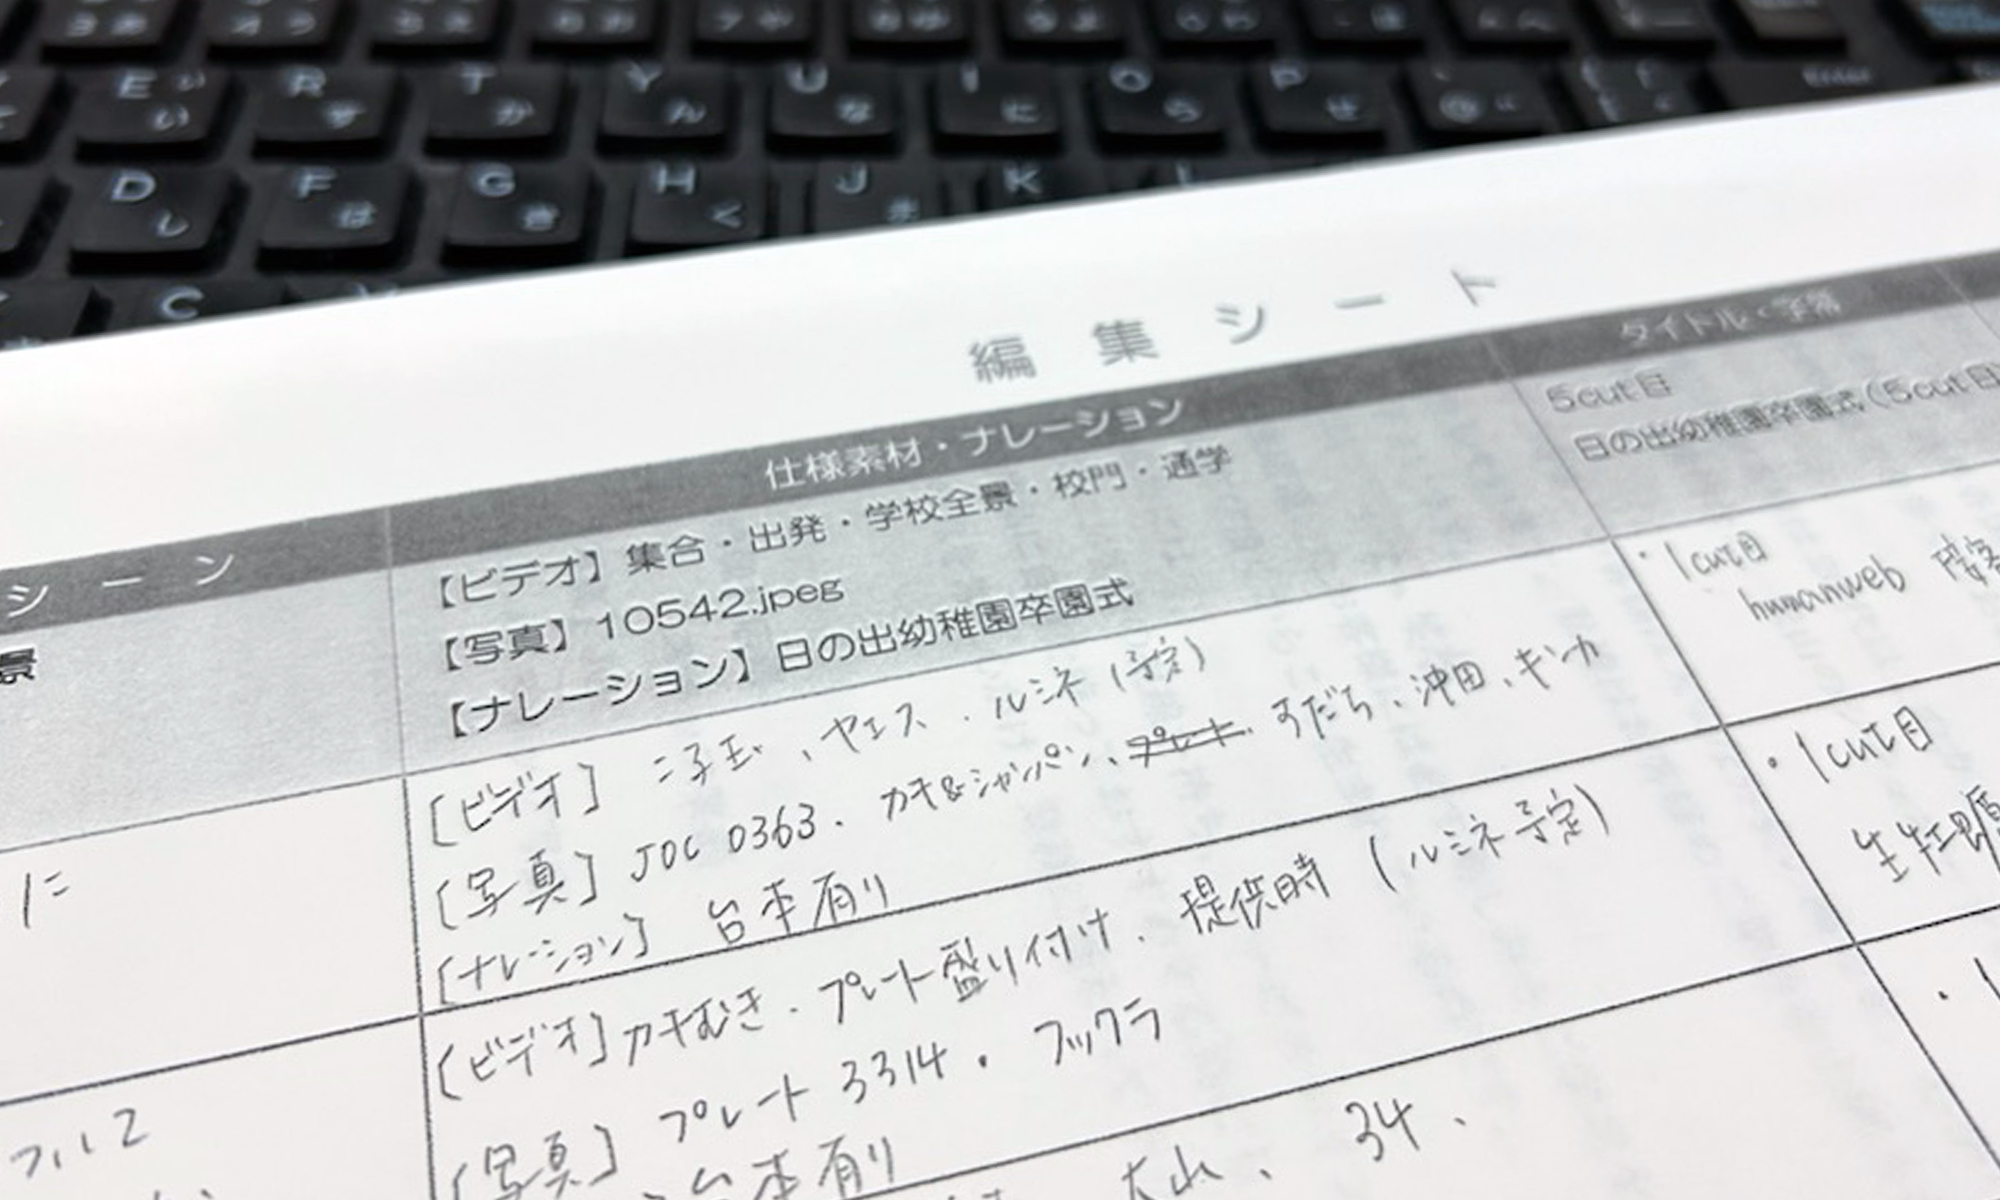 編集シート
シーン
仕様素材・ナレーション
タイトル・字幕
景
【ビデオ】集合・出発・学校全景・校門・通学
【写真】10542.jpeg
【ナレーション】日の出幼稚園卒園式
5cut目
日の出幼稚園卒園式(5cut目
に
[ビデオ] 二子玉、ヤエス、ルミネ(予定)
[写真] JOC 0363、カキ&シャンパン、プレート、すだち、沖田、キンカ
[ナレーション] 台本有り
・1cut目
humanweb 接客
[ビデオ] カキむき、プレート盛り付け、提供時(ルミネ予定)
[写真] プレート3314、フックラ
台本有り
・1cut目
生牡蠣
大山、34、
E い
R す
T か
Y ん
U な
I に
O ら
P せ
Enter
D し
F は
G き
H く
J ま
K
L
C